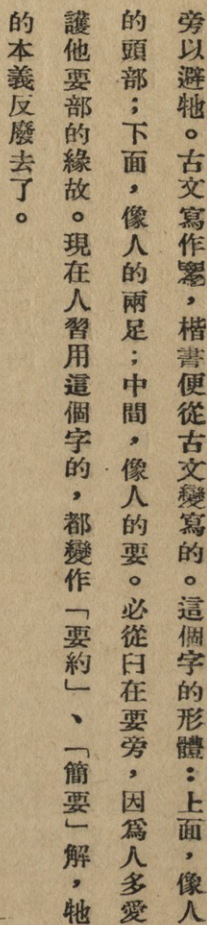 旁以避牠。古文寫作，楷書便從古文變寫的。這個字的形體：上面，像人
的頭部；下面，像人的兩足；中間，像人的要。必從𦥑在要旁，因爲人多愛
護他要部的緣故。現在人習用這個字的，都變作「要約」、「簡要」解，牠
的本義反廢去了。